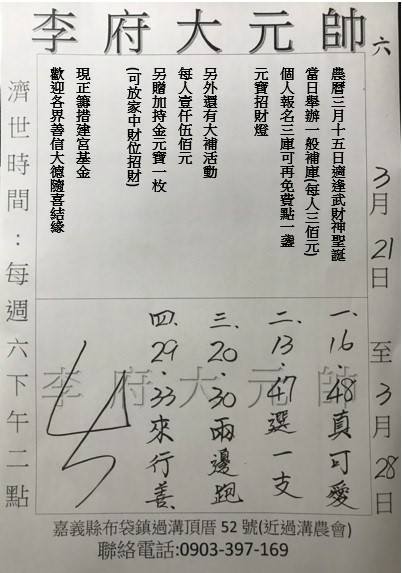 李府大元帥
六
3月21日至3月28日
農曆三月十五日適逢武財神聖誕
當日舉辦一般補庫(每人三佰元)
個人報名三庫可再免費點一盞
元寶招財燈
另外還有大補活動
每人壹仟伍佰元
另贈加持金元寶一枚
(可放家中財位招財)
現正籌措建宮基金
歡迎各界善信大德隨喜結緣
濟世時間:每週六下午二點
李府大元帥
一、16、48真可愛
二、13、47選一支
三、20、30兩邊跑
四、29、33來行善
嘉義縣布袋鎮過溝頂厝52號(近過溝農會)
聯絡電話:0903-397-169